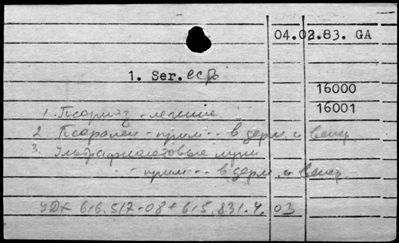 04.02.83. GA
1. Ser. есть
16000
16001
1. Псориаз - лечение
2. Псорален - прим - - в дерм. и венер
3. Ультрафиолетовые лучи
- прим - - в дерм. и венер
УДК 616.517-08 + 615.831.4. 03